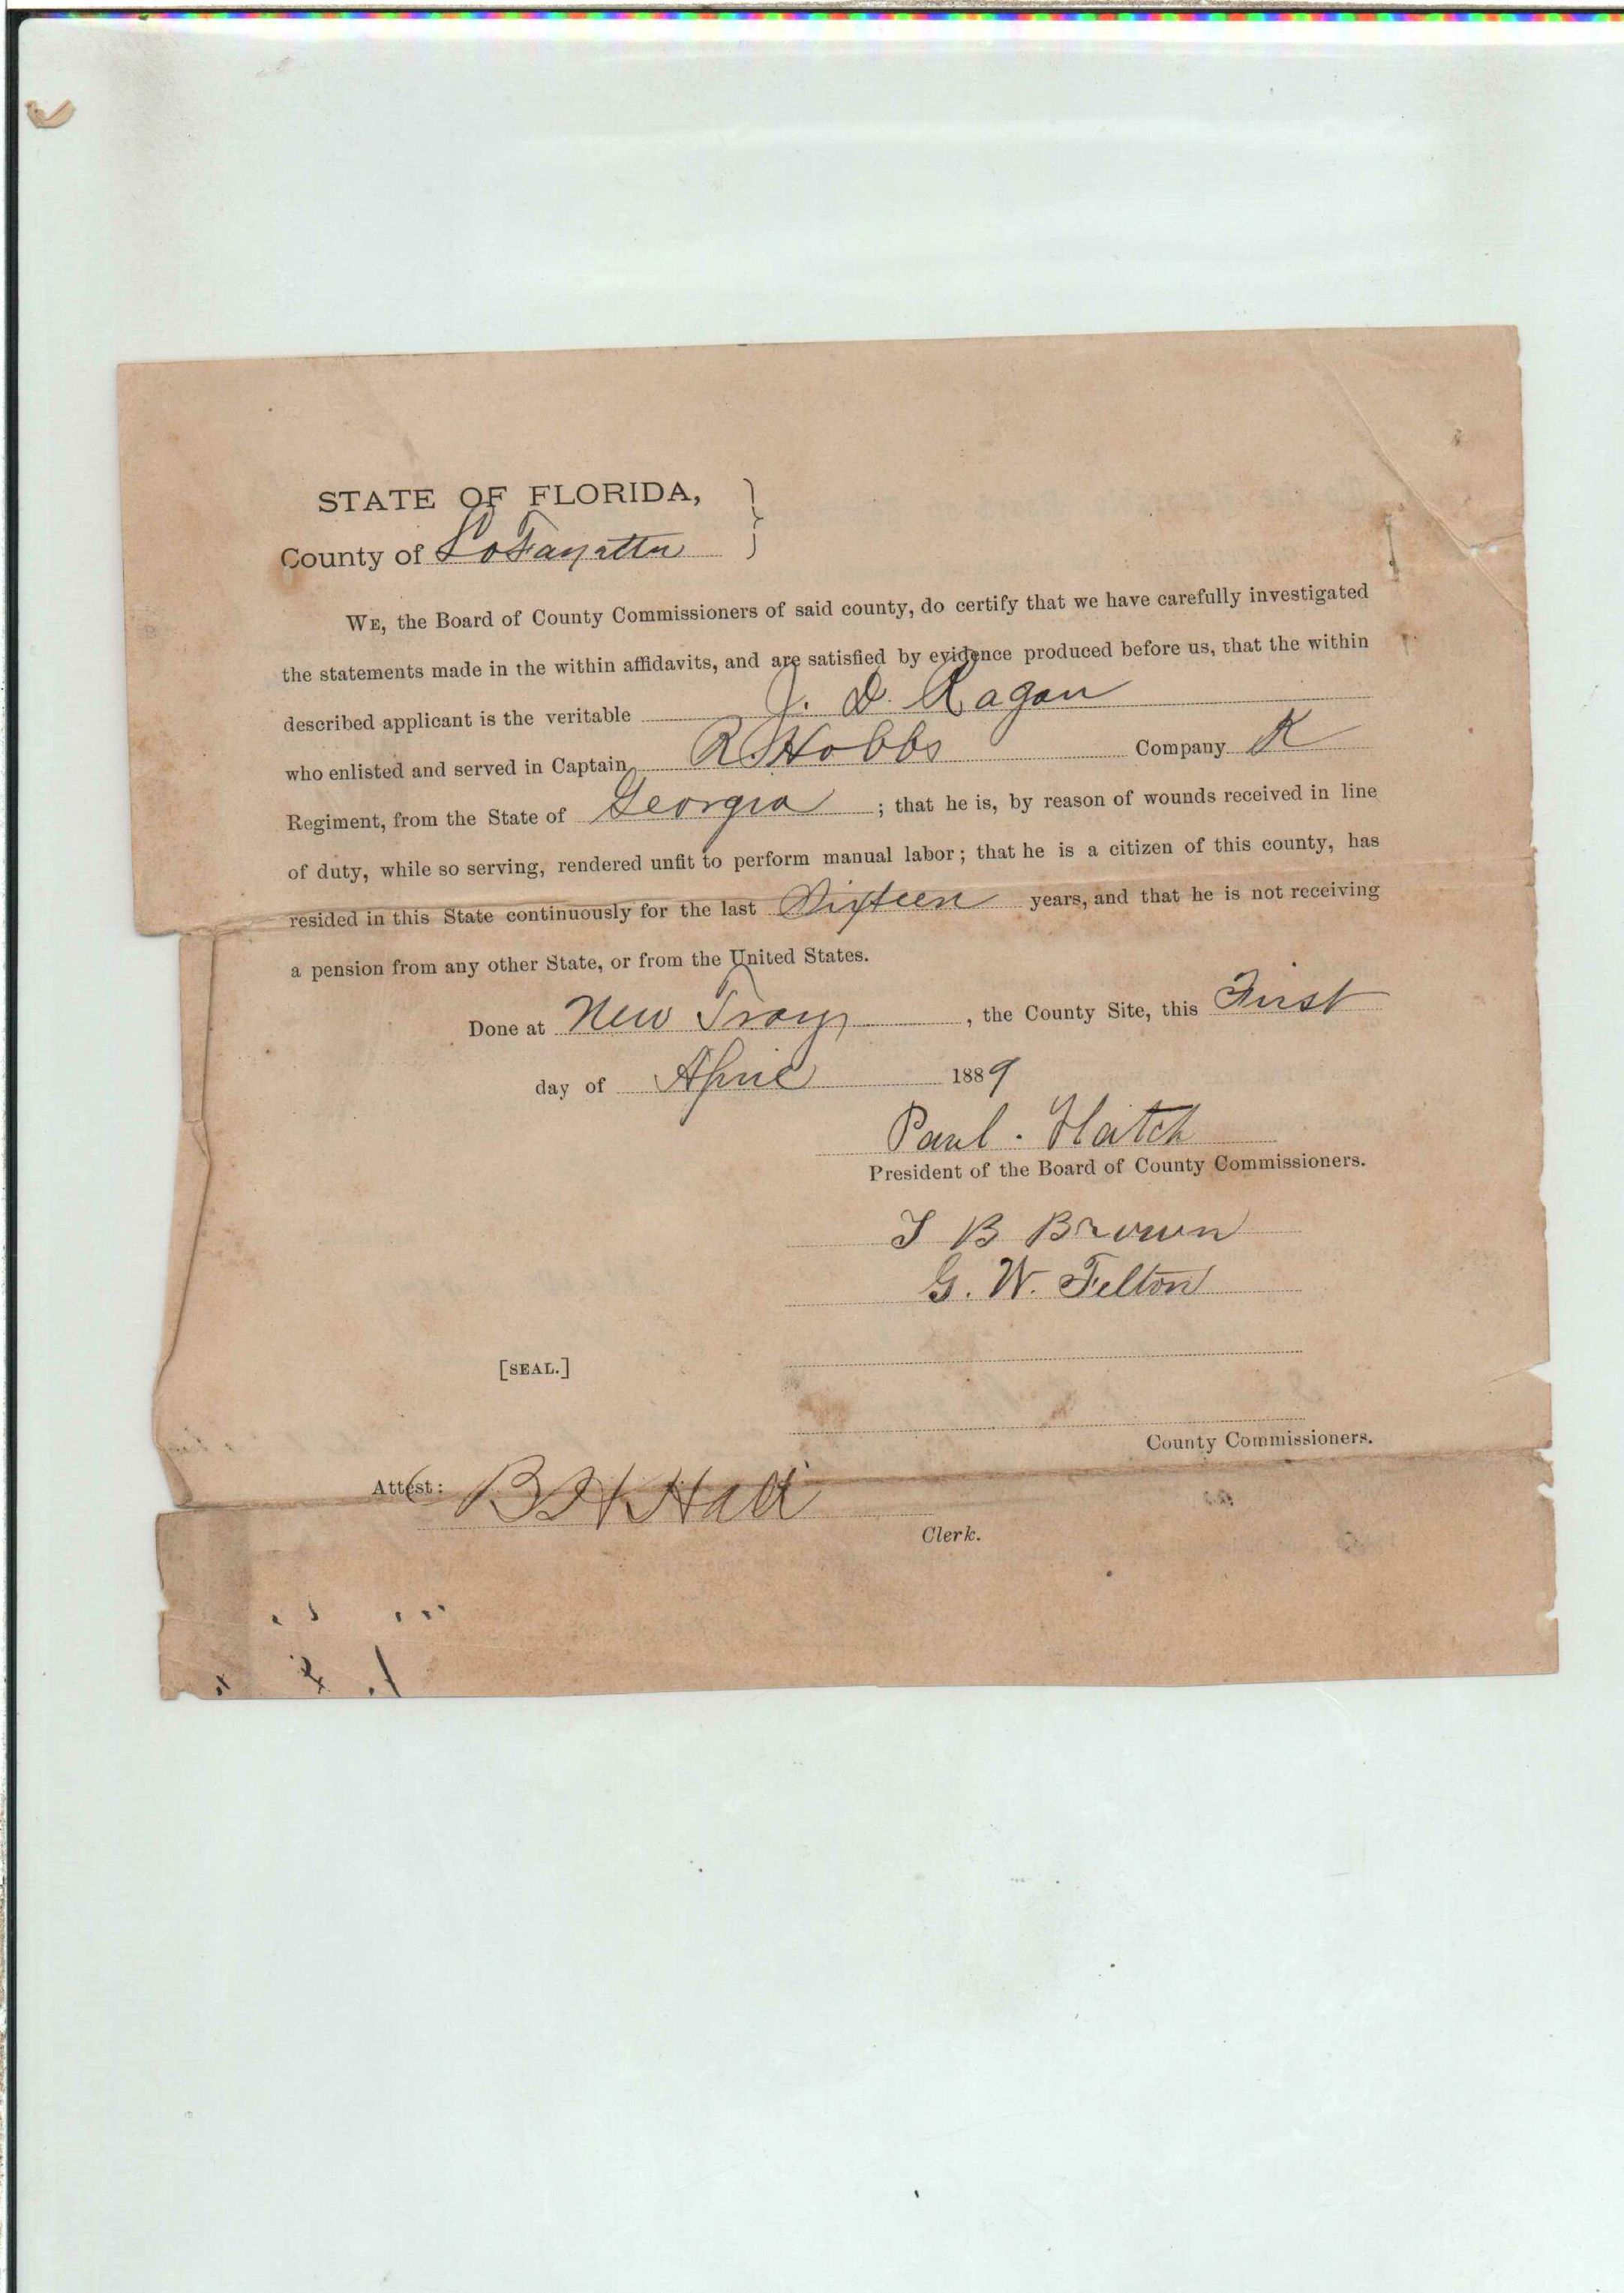 STATE OF FLORIDA, }
County of LaFayatta
WE, the Board of County Commissioners of said county, do certify that we have carefully investigated
the statements made in the within affidavits, and are satisfied by evidence produced before us, that the within
described applicant is the veritable J. D. Ragan
who enlisted and served in Captain R Hobbs Company K
Regiment, from the State of Georgia ; that he is, by reason of wounds received in line
of duty, while so serving, rendered unfit to perform manual labor; that he is a citizen of this county, has
resided in this State continuously for the last Sixteen years, and that he is not receiving
a pension from any other State, or from the United States.
Done at New Troy , the County Site, this First
day of April 1889
Paul. Hatch
President of the Board of County Commissioners.
T B Brown
G. W. Felton
[SEAL.]
County Commissioners.
Attest: Hall
Clerk.